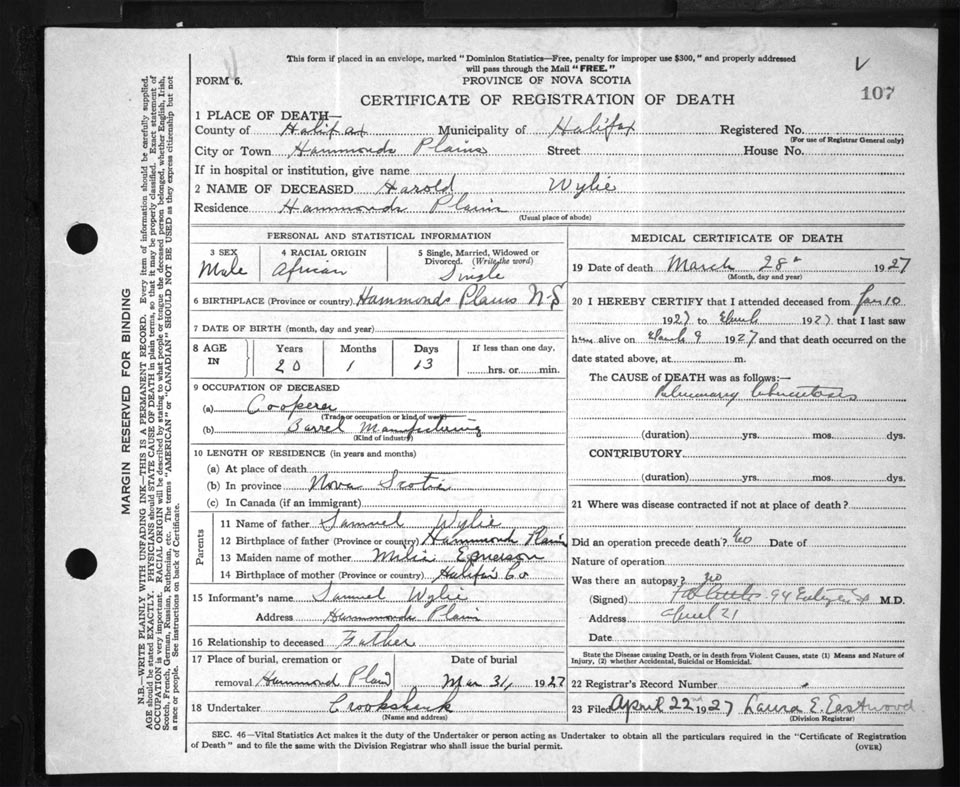 This form if placed in an envelope, marked "Dominion Statistics—Free, penalty for improper use $300," and properly addressed
will pass through the Mail "FREE."
FORM 6.
PROVINCE OF NOVA SCOTIA
107
CERTIFICATE OF REGISTRATION OF DEATH
1 PLACE OF DEATH—
County of Halifax Municipality of Halifax Registered No.
(For use of Registrar General only)
City or Town Hammonds Plains Street House No.
If in hospital or institution, give name
2 NAME OF DECEASED Harold Wylie
Residence Hammonds Plains
(Usual place of abode)
PERSONAL AND STATISTICAL INFORMATION
3 SEX
Male
4 RACIAL ORIGIN
African
5 Single, Married, Widowed or
Divorced. (Write the word)
Single
6 BIRTHPLACE (Province or country). Hammonds Plains N.S
7 DATE OF BIRTH (month, day and year)
8 AGE IN
Years Months Days If less than one day.
20 1 13 hrs. or min.
9 OCCUPATION OF DECEASED
(a) Cooperer
(Trade or occupation or kind of work)
(b) Barrel Manufacturing
(Kind of industry)
10 LENGTH OF RESIDENCE (in years and months)
(a) At place of death
(b) In province Nova Scotia
(c) In Canada (if an immigrant)
Parents
11 Name of father Samuel Wylie
12 Birthplace of father (Province or country) Hammonds Plain
13 Maiden name of mother Emerson
14 Birthplace of mother (Province or country) Halifax Co
15 Informant's name Samuel Wylie
Address Hammonds Plain
16 Relationship to deceased Father
17 Place of burial, cremation or Date of burial
removal Hammond Plain Mar 31, 1927
18 Undertaker Crookshank
(Name and address)
MEDICAL CERTIFICATE OF DEATH
19 Date of death March 28th 1927
(Month, day and year)
20 I HEREBY CERTIFY that I attended deceased from Jan 10
1927 to March 1927 that I last saw
him alive on March 9 1927 and that death occurred on the
date stated above, at m.
The CAUSE of DEATH was as follows:—
Pulmonary tuberculosis
(duration) yrs. mos. dys.
CONTRIBUTORY
(duration) yrs. mos. dys.
21 Where was disease contracted if not at place of death?
Did an operation precede death? No Date of
Nature of operation
Was there an autopsy? No
(Signed) 94 M.D.
Address April 21
Date
State the Disease causing Death, or in death from Violent Causes, state (1) Means and Nature of
Injury, (2) whether Accidental, Suicidal or Homicidal.
22 Registrar's Record Number
23 Filed April 22 1927 Laura E. Eastwood
(Division Registrar)
SEC. 46—Vital Statistics Act makes it the duty of the Undertaker or person acting as Undertaker to obtain all the particulars required in the "Certificate of Registration
of Death" and to file the same with the Division Registrar who shall issue the burial permit.
(OVER)
MARGIN RESERVED FOR BINDING
N.B.—WRITE PLAINLY WITH UNFADING INK—THIS IS A PERMANENT RECORD. Every item of information should be carefully supplied.
AGE should be stated EXACTLY. PHYSICIANS should STATE CAUSE OF DEATH in plain terms, so that it may be properly classified. Exact statement of
OCCUPATION is very important. RACIAL ORIGIN will be described by stating to what people or tongue the deceased person belonged, whether English, Irish,
Scotch, French, German, Russian, Ruthenian, etc. The terms "AMERICAN" or "CANADIAN" SHOULD NOT BE USED as they express citizenship but not
a race or people. See instructions on back of Certificate.